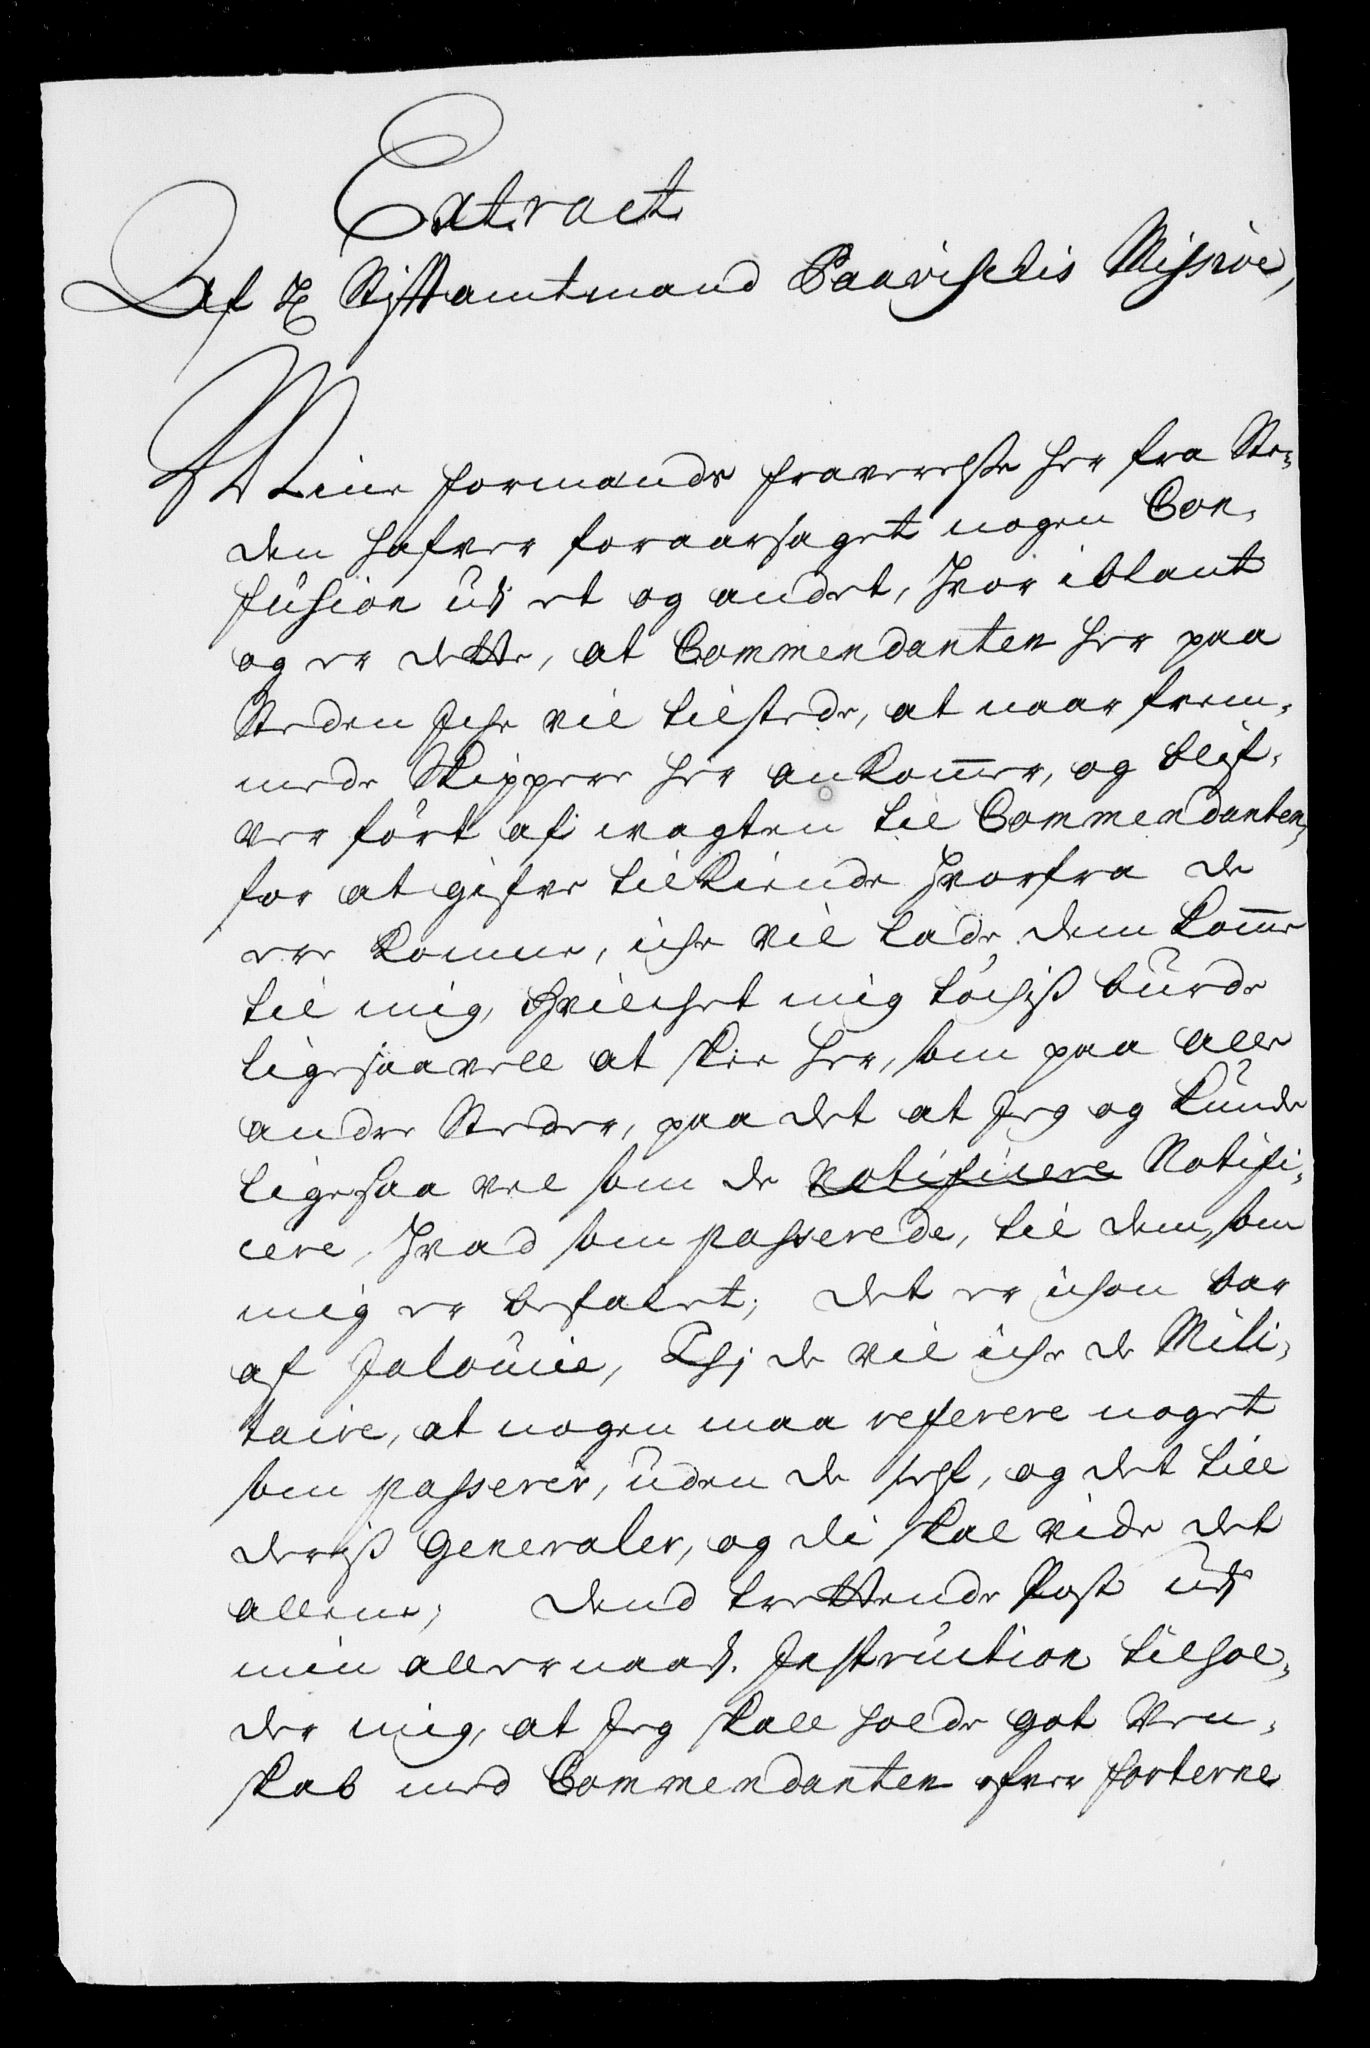 Extract
Af H Stiftamtmand Paavischis Missive,
Mine formands fraværelse her fra Ste-
den hafver foraarsaget nogen Con-
fusion udi et og andet, hvor iblant
og er dette, at Commendanten her paa
Steden iche vil tilstede, at naar frem-
mede Skippere her ankommer, og blif-
ver ført af wagten til Commendanten,
for at gifve tilkiende hvorfra de
ere komne, iche vil lade dem komme
til mig, hvilchet mig tøchis burde
ligesaavell at skee her, som paa alle
andre Steder, paa det at Jeg og kunde
ligesaa vel som de Notificere Notifi-
cere, hvad som passerede, til dem, som
mig er befalet; det er ichon bar
af Jalousie, Thj de vil iche de Mili-
taire, at nogen maa referere noget
som passerer, uden de self, og det till
deris Generaler, og di skal vide det
allene; dend trettende Post udj
min allernaad. Instruction tilhol-
der mig, at Jeg skall holde got Ven-
skab med Commendanten ofver forterne